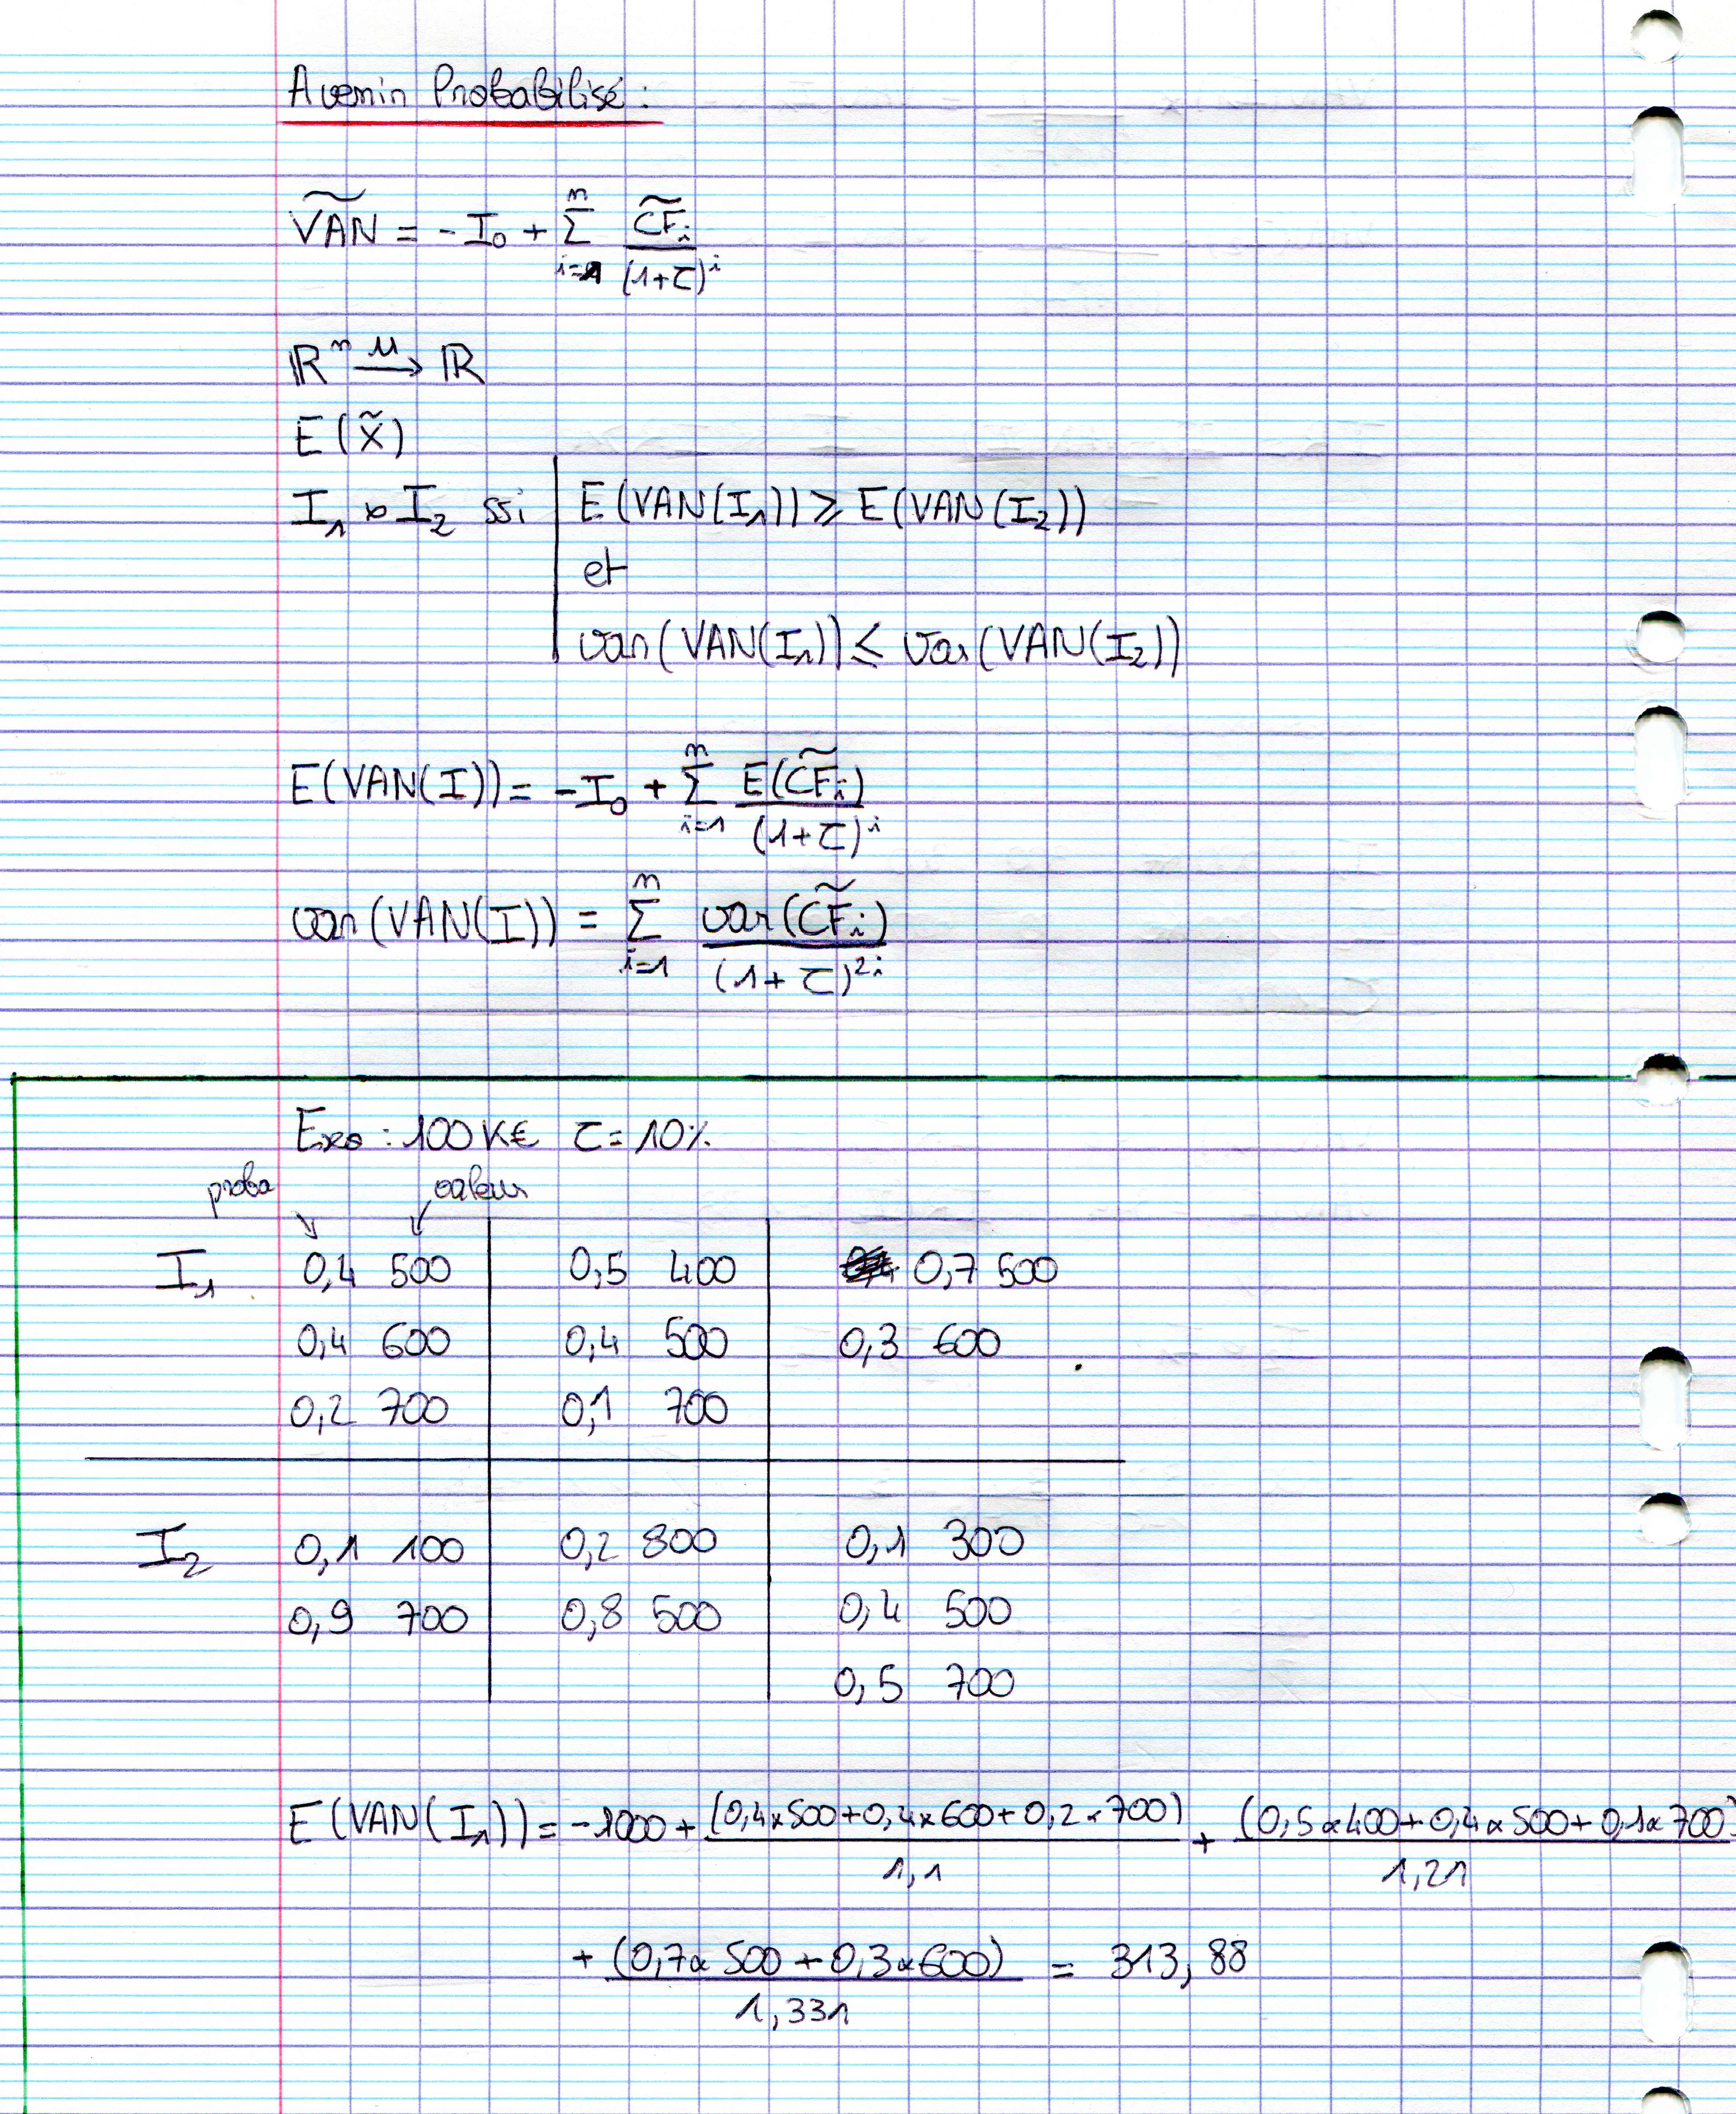 Avenir Probabilisé :
ṼAN = - I₀ + Σ_{i=1}^{n} C̃Fᵢ / (1+τ)^i
ℝⁿ —μ→ ℝ
E(x̃)
I₁ ≻ I₂ ssi E(VAN(I₁)) ⩾ E(VAN(I₂))
et
var(VAN(I₁)) ⩽ Var(VAN(I₂))
E(VAN(I)) = -I₀ + Σ_{i=1}^{n} E(C̃Fᵢ) / (1+τ)^i
var(VAN(I)) = Σ_{i=1}^{n} var(C̃Fᵢ) / (1+τ)^{2i}
Exo : 100 K€ τ = 10%
proba valeur
I₁ 0,4 500 0,5 400 0,7 500
0,4 600 0,4 500 0,3 600
0,2 700 0,1 700
I₂ 0,1 100 0,2 800 0,1 300
0,9 700 0,8 500 0,4 500
0,5 700
E(VAN(I₁)) = -1000 + (0,4×500+0,4×600+0,2×700) / 1,1 + (0,5×400+0,4×500+0,1×700) / 1,21
+ (0,7×500+0,3×600) / 1,331 = 313,88